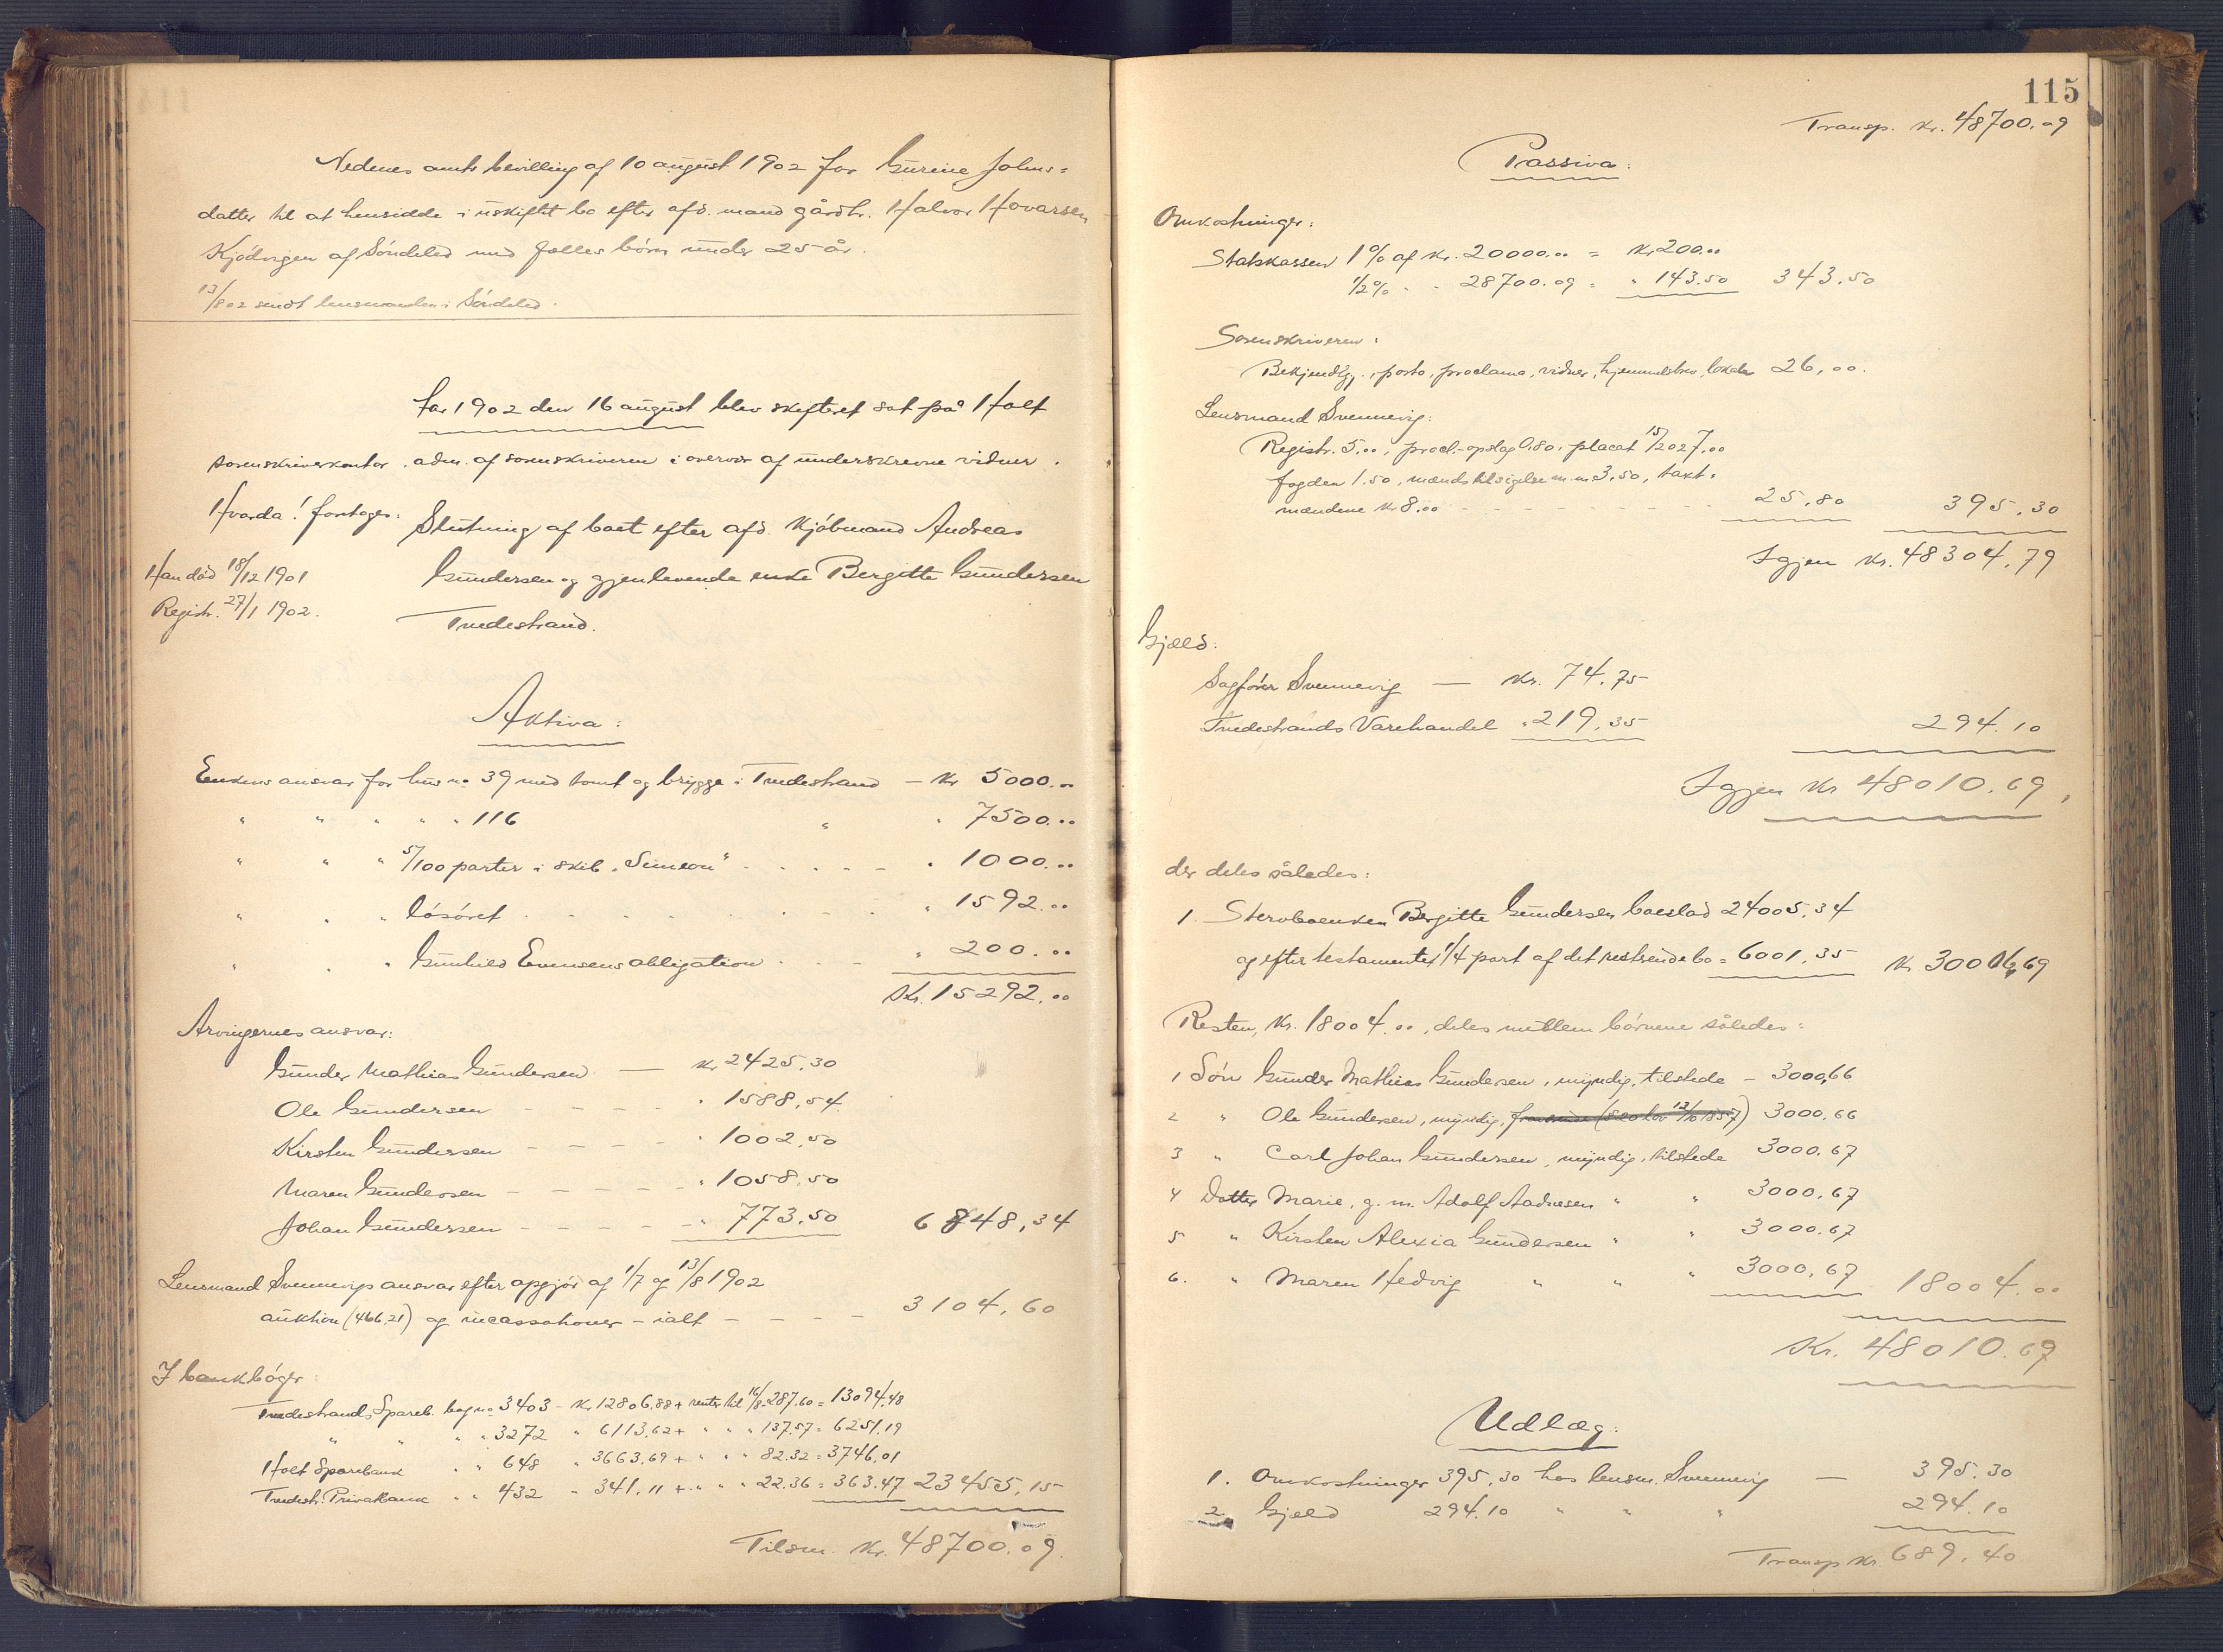 Nedenes amts bevilling af 10 august 1902 for Gurine Johns=
datter til at hensidde i uskiftet bo efter afd. mand gårdbr. Halvor Hovarsen
Kjödvigen af Söndeled med fælles børn under 25 år.
13/8 02 sendt lensmanden i Söndeled.
År 1902 den 16 august blev skifteret sat på Holt
sorenskriverkontor, adm. af sorenskriveren i overvær af underskrevne vidner.
Hvorda! foretoges:
Slutning af boet efter afd. Kjöbmand Andreas
Han död 18/12 1901
Gundersen og gjenlevende enke Bergitte Gundersen
Registr. 27/1 1902.
Tvedestrand.
Aktiva:
Enkens ansvar for hus no 39 med tomt og brygge i Tvedestrand – Kr 5000.00
" " " " " 116 " " 7500.00
" " " 5/100 parter i skib "Simeon" - - - - - " 1000.00
" " " lösöret - - - - - " 1592.00
" " " Gunhild Evensens obligation - - - " 200.00
Kr. 15292.00
Arvingernes ansvar:
Gunder Mathias Gundersen — Kr 2425.30
Ole Gundersen - - - - " 1588,54
Kirsten Gundersen - - - - " 1002,50
Maren Gundersen - - - - - " 1058,50
Johan Gundersen - - - - - " 773,50 6848,34
Lensmand Svennevigs ansvar efter opgjör af 1/7 og 13/8 1902
auktion (466,21) og incassationer – ialt - - - - 3104,60
I bankböger:
Tvedestrands Spareb. bog no 3403 – Kr 12806,88 + renter til 16/8 287.60 = 13094,48
" " " " 3272 " 6113,62 + " " " 137,57 = 6251,19
Holt Sparebank " " 648 " 3663,69 + " " " 82.32 = 3746,01
Tvedestr. Privatbank " " 432 " 341,11 + " " " 22.36 = 363.47 23455,15
Tilsm. Kr. 48700.09.
115
Transp. Kr. 48700,09
Passiva:
Omkostninger:
Statskassen 1% af Kr. 20000.00 = Kr 200.00
1/2% " " 28700.09 = " 143.50 343,50
Sorenskriveren:
Bekjendtg., porto, proclama, vidner, hjemmelsbrev, lokale 26,00.
Lensmand Svennevig:
Registr. 5.00, procl.-opslag 0,80, placat 15/2 02 7,00
fogden 1.50, mænds tilsigelse m.m 3,50, taxt=
mændene Kr 8,00 - - - - - - - - 25,80 395,30
Igjen Kr. 48304,79
Gjæld:
Sagförer Svennevig — Kr. 74,75
Tvedestrands Varehandel " 219,35 294.10
Igjen Kr 48010.69,
der deles således:
1. Stervboenken Bergitte Gundersen boeslod 24005,34
og efter testamentet 1/4 part af det restrende bo = 6001,35 Kr 30006,69
Resten, Kr. 18004.00, deles mellem börnene således:
1 Sön Gunder Mathias Gundersen, myndig, tilstede – 3000,66
2 " Ole Gundersen, myndig, fraværende (§ 20 lov 12/10 1857) 3000,66
3 " Carl Johan Gundersen, myndig, tilstede 3000,67
4 Datter Marie, g. m. Adolf Aadnesen " " 3000,67
5 " Kirsten Alexia Gundersen " " 3000.67
6. " Maren Hedvig " " " 3000,67 18004.00
Kr. 48010.69
Udlæg:
1. Omkostninger 395,30 hos lensm. Svennevig — 395.30
2. Gjæld 294.10 " " " 294.10
Transp Kr. 689,40